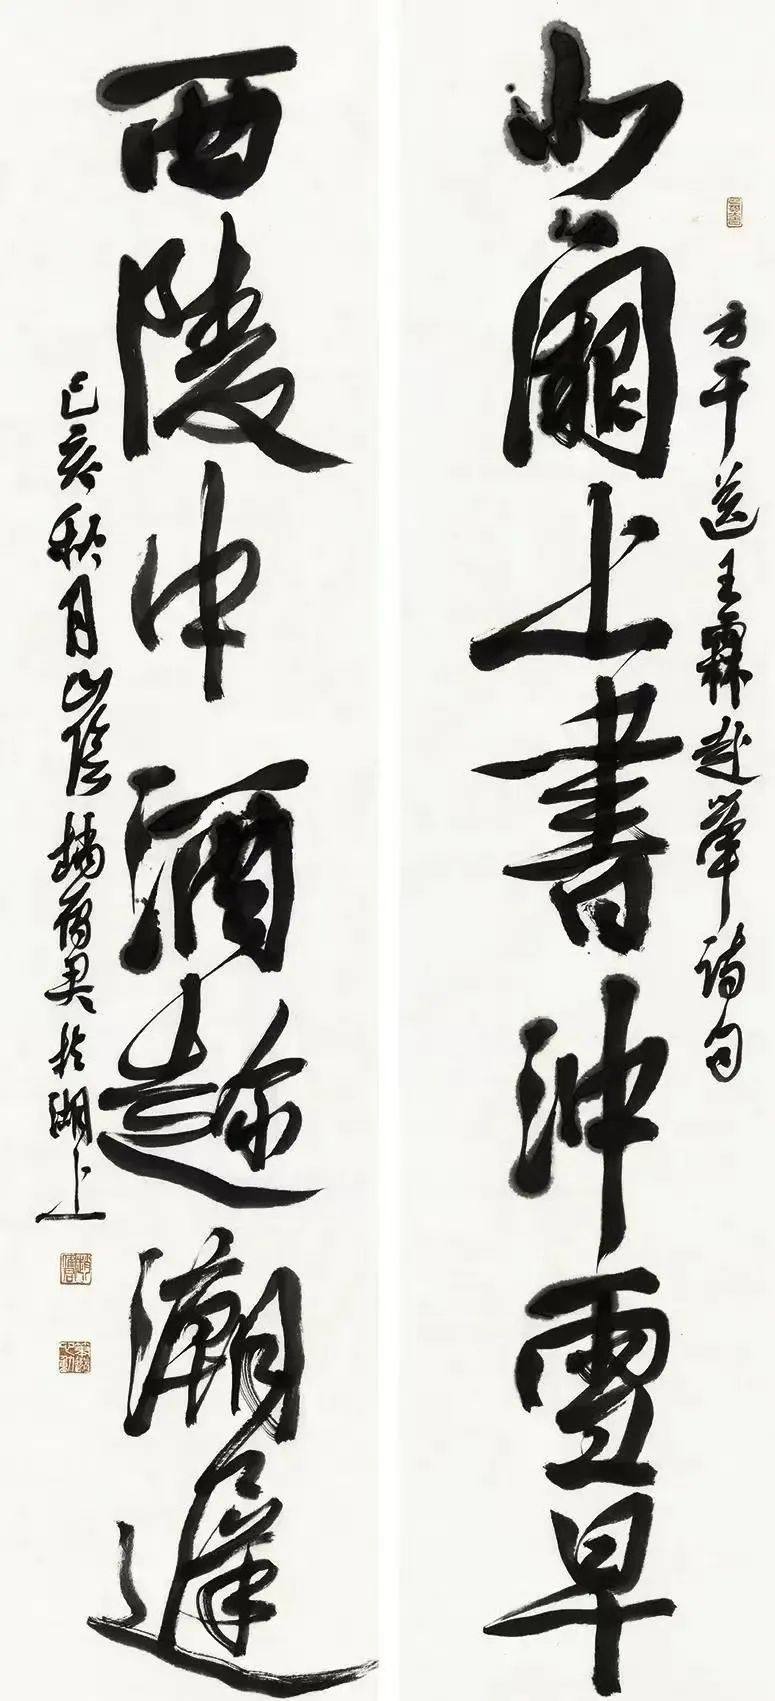 北闕上書沖雪早
方干送王霖赴舉詩句
西陵中酒趂潮遲
己亥秋月山陰趙雁君於湖上